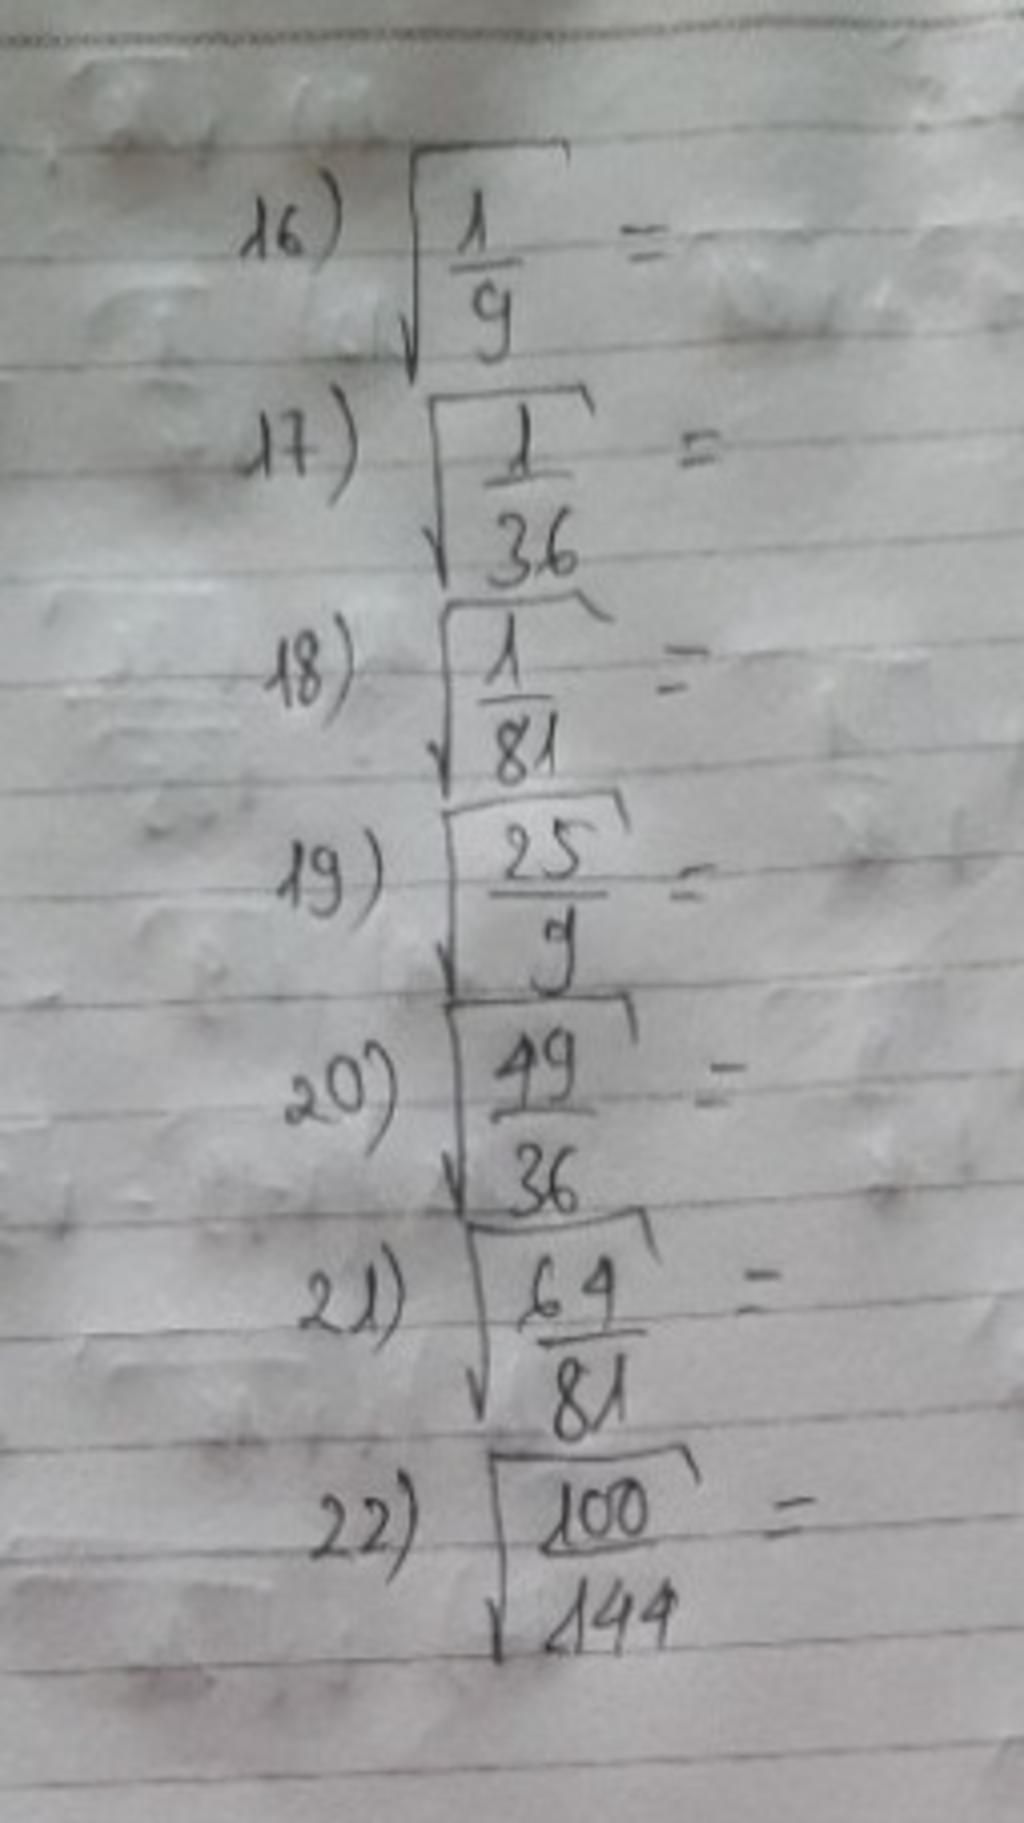 16) √(1/9) =
17) √(1/36) =
18) √(1/81) =
19) √(25/9) =
20) √(49/36) =
21) √(64/81) =
22) √(100/144) =